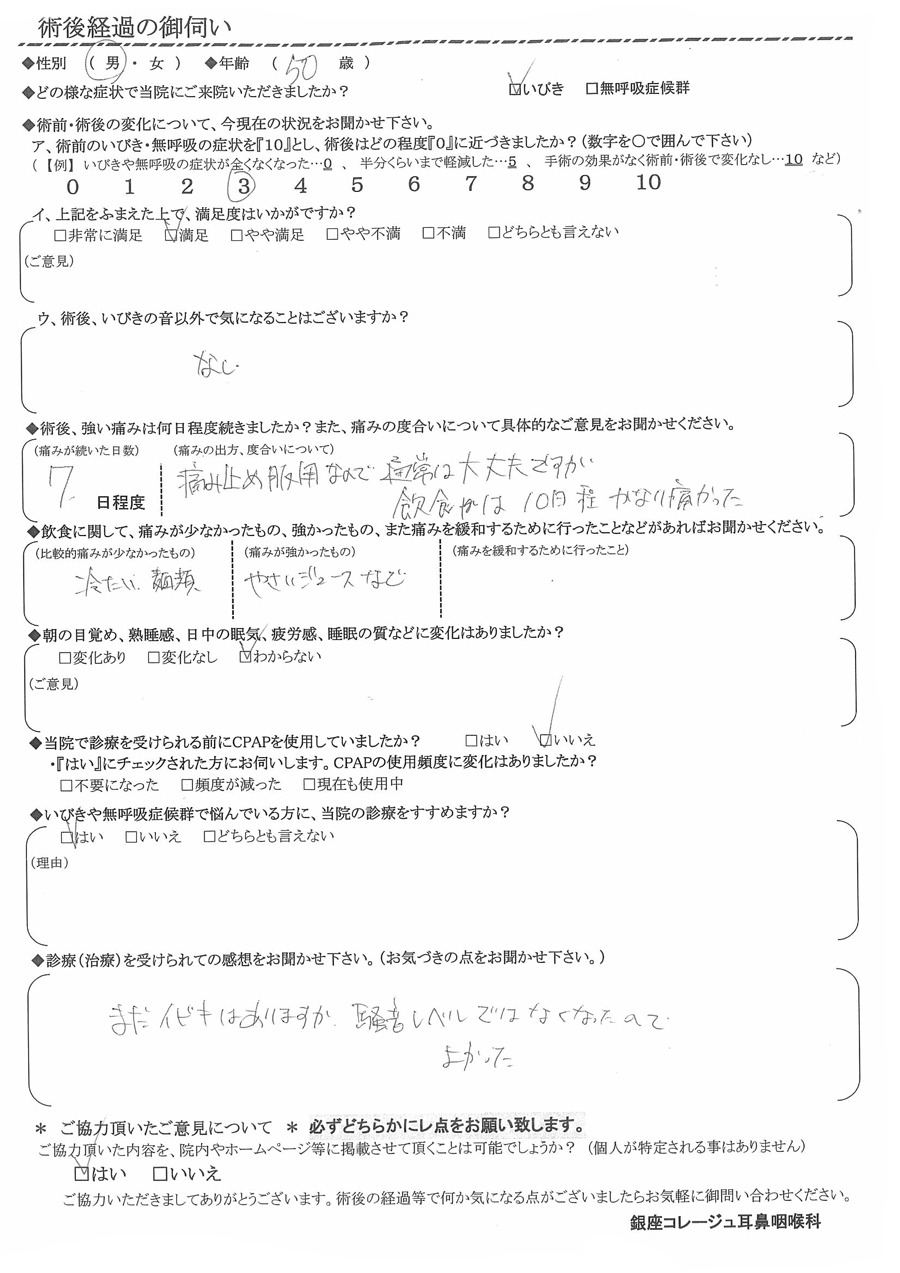 術後経過の御伺い
◆性別 （ 男 ・ 女 ） ◆年齢 （ 50 歳 ）
◆どの様な症状で当院にご来院いただきましたか？ ☑いびき □無呼吸症候群
◆術前・術後の変化について、今現在の状況をお聞かせ下さい。
ア、術前のいびき・無呼吸の症状を『10』とし、術後はどの程度『0』に近づきましたか？（数字を○で囲んで下さい）
（【例】いびきや無呼吸の症状が全くなくなった…0 、 半分くらいまで軽減した…5 、 手術の効果がなく術前・術後で変化なし…10 など）
0 1 2 3 4 5 6 7 8 9 10
イ、上記をふまえた上で、満足度はいかがですか？
□非常に満足 ☑満足 □やや満足 □やや不満 □不満 □どちらとも言えない
（ご意見）
ウ、術後、いびきの音以外で気になることはございますか？
なし
◆術後、強い痛みは何日程度続きましたか？また、痛みの度合いについて具体的なご意見をお聞かせください。
（痛みが続いた日数） （痛みの出方、度合いについて）
7 日程度 痛み止め服用なので 通常は大丈夫ですが
飲食時は 10日程 かなり痛かった
◆飲食に関して、痛みが少なかったもの、強かったもの、また痛みを緩和するために行ったことなどがあればお聞かせください。
（比較的痛みが少なかったもの） （痛みが強かったもの） （痛みを緩和するために行ったこと）
冷たい 麺類 やさいジュースなど
◆朝の目覚め、熟睡感、日中の眠気、疲労感、睡眠の質などに変化はありましたか？
□変化あり □変化なし ☑わからない
（ご意見）
◆当院で診療を受けられる前にCPAPを使用していましたか？ □はい ☑いいえ
・『はい』にチェックされた方にお伺いします。CPAPの使用頻度に変化はありましたか？
□不要になった □頻度が減った □現在も使用中
◆いびきや無呼吸症候群で悩んでいる方に、当院の診療をすすめますか？
☑はい □いいえ □どちらとも言えない
（理由）
◆診療（治療）を受けられての感想をお聞かせ下さい。（お気づきの点をお聞かせ下さい。）
まだイビキはありますが、騒音レベルではなくなったので
よかった
＊ ご協力頂いたご意見について ＊ 必ずどちらかにレ点をお願い致します。
ご協力頂いた内容を、院内やホームページ等に掲載させて頂くことは可能でしょうか？（個人が特定される事はありません）
☑はい □いいえ
ご協力いただきましてありがとうございます。術後の経過等で何か気になる点がございましたらお気軽に御問い合わせください。
銀座コレージュ耳鼻咽喉科